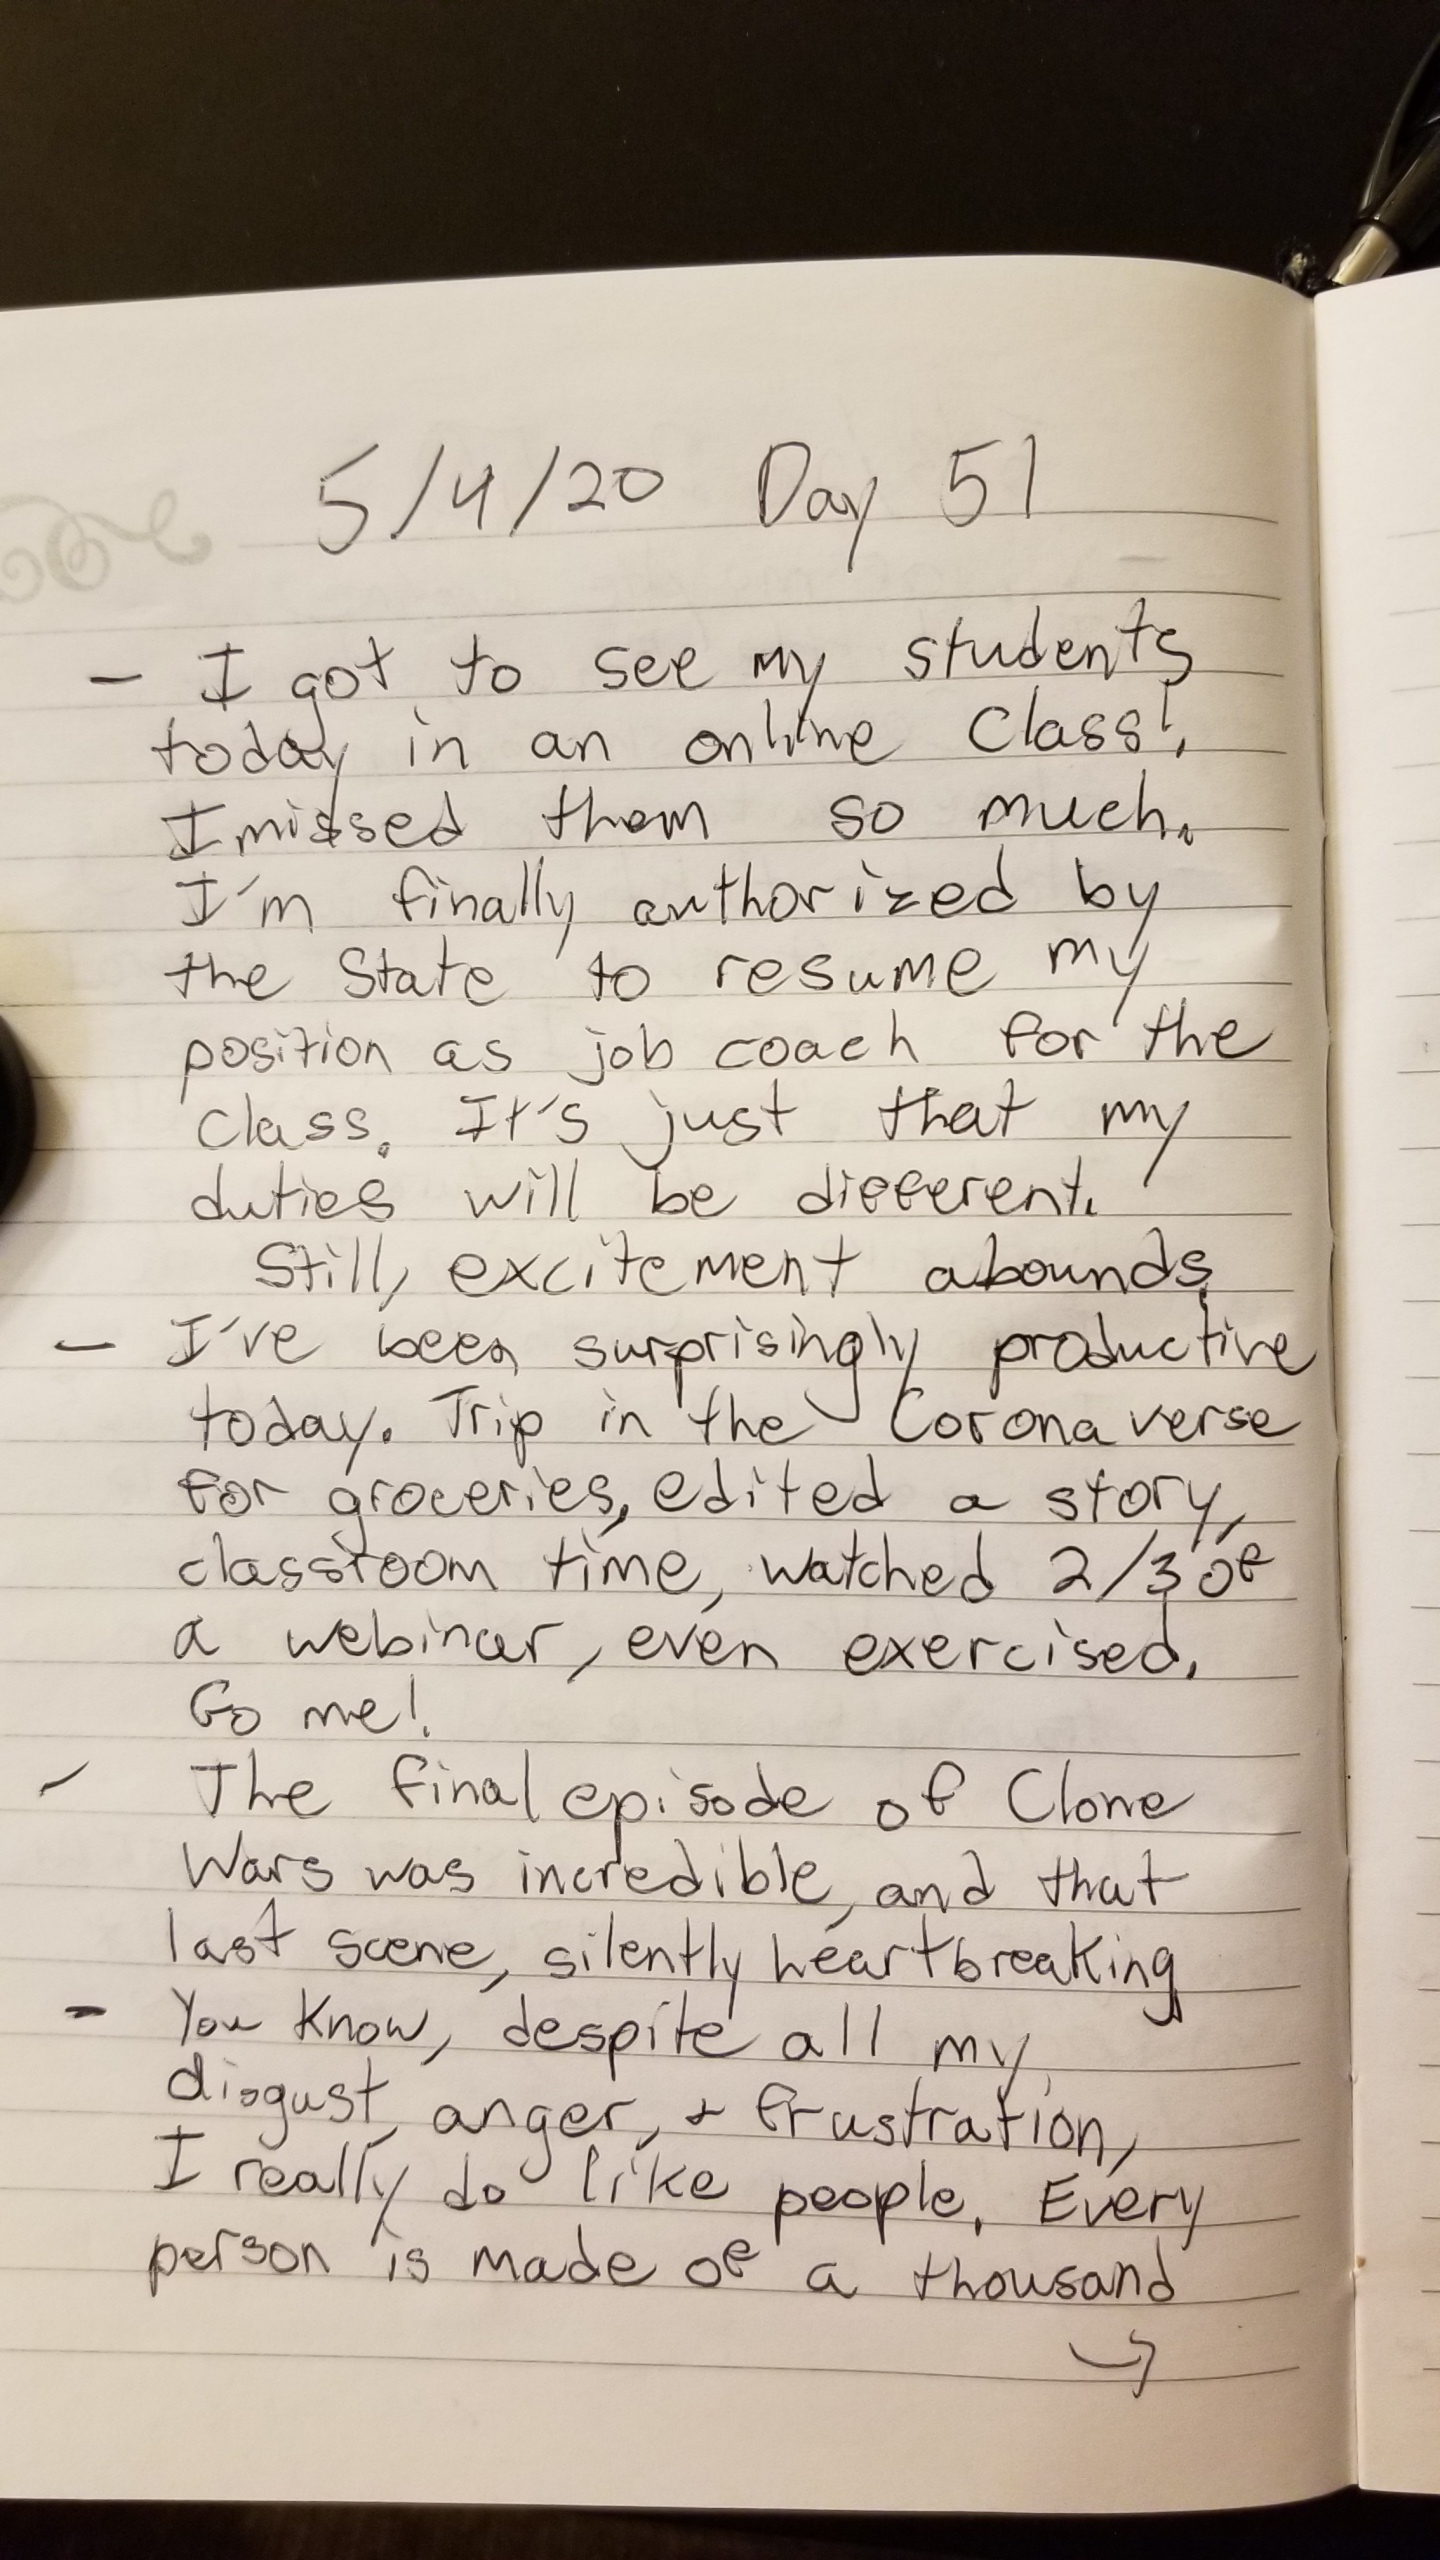 5/4/20 Day 51
- I got to see my students
today in an online class!
I missed them so much.
I'm finally authorized by
the State to resume my
position as job coach for the
class. It's just that my
duties will be different.
Still, excitement abounds.
- I've been surprisingly productive
today. Trip in the Corona verse
for groceries, edited a story,
classroom time, watched 2/3 of
a webinar, even exercised.
Go me!
- The final episode of Clone
Wars was incredible, and that
last scene, silently heartbreaking
- You know, despite all my
disgust, anger, + frustration,
I really do like people. Every
person is made of a thousand
→